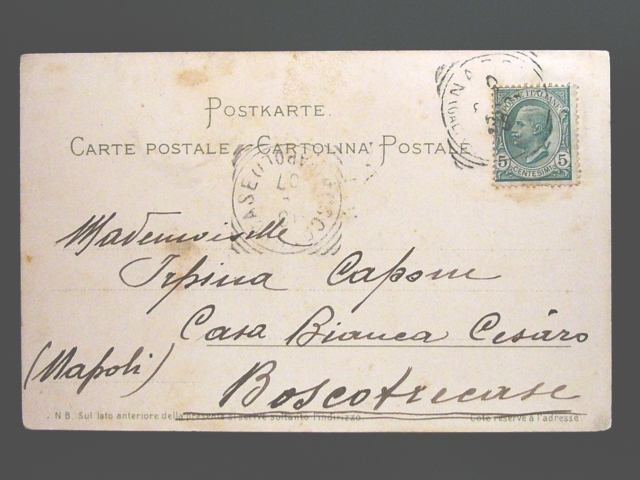 POSTKARTE.
CARTE POSTALE - CARTOLINA POSTALE
POSTE ITALIANE
5 CENTESIMI 5
Mademoiselle
Irpina Capone
Casa Bianca Cesáro
(Napoli) Boscotrecase
N.B. Sul lato anteriore della presente si scrive soltanto l'indirizzo. Coté reservé à l'adresse